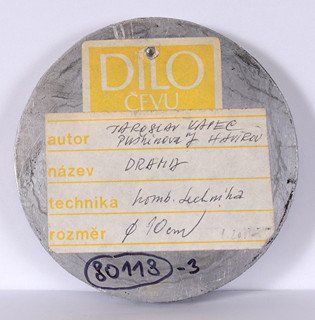 DÍLO
ČFVU
autor JAROSLAV KAPEC
Puškinova HAVÍŘOV
název DRAMA
technika komb. technika
rozměr ø 10 cm
80113-3